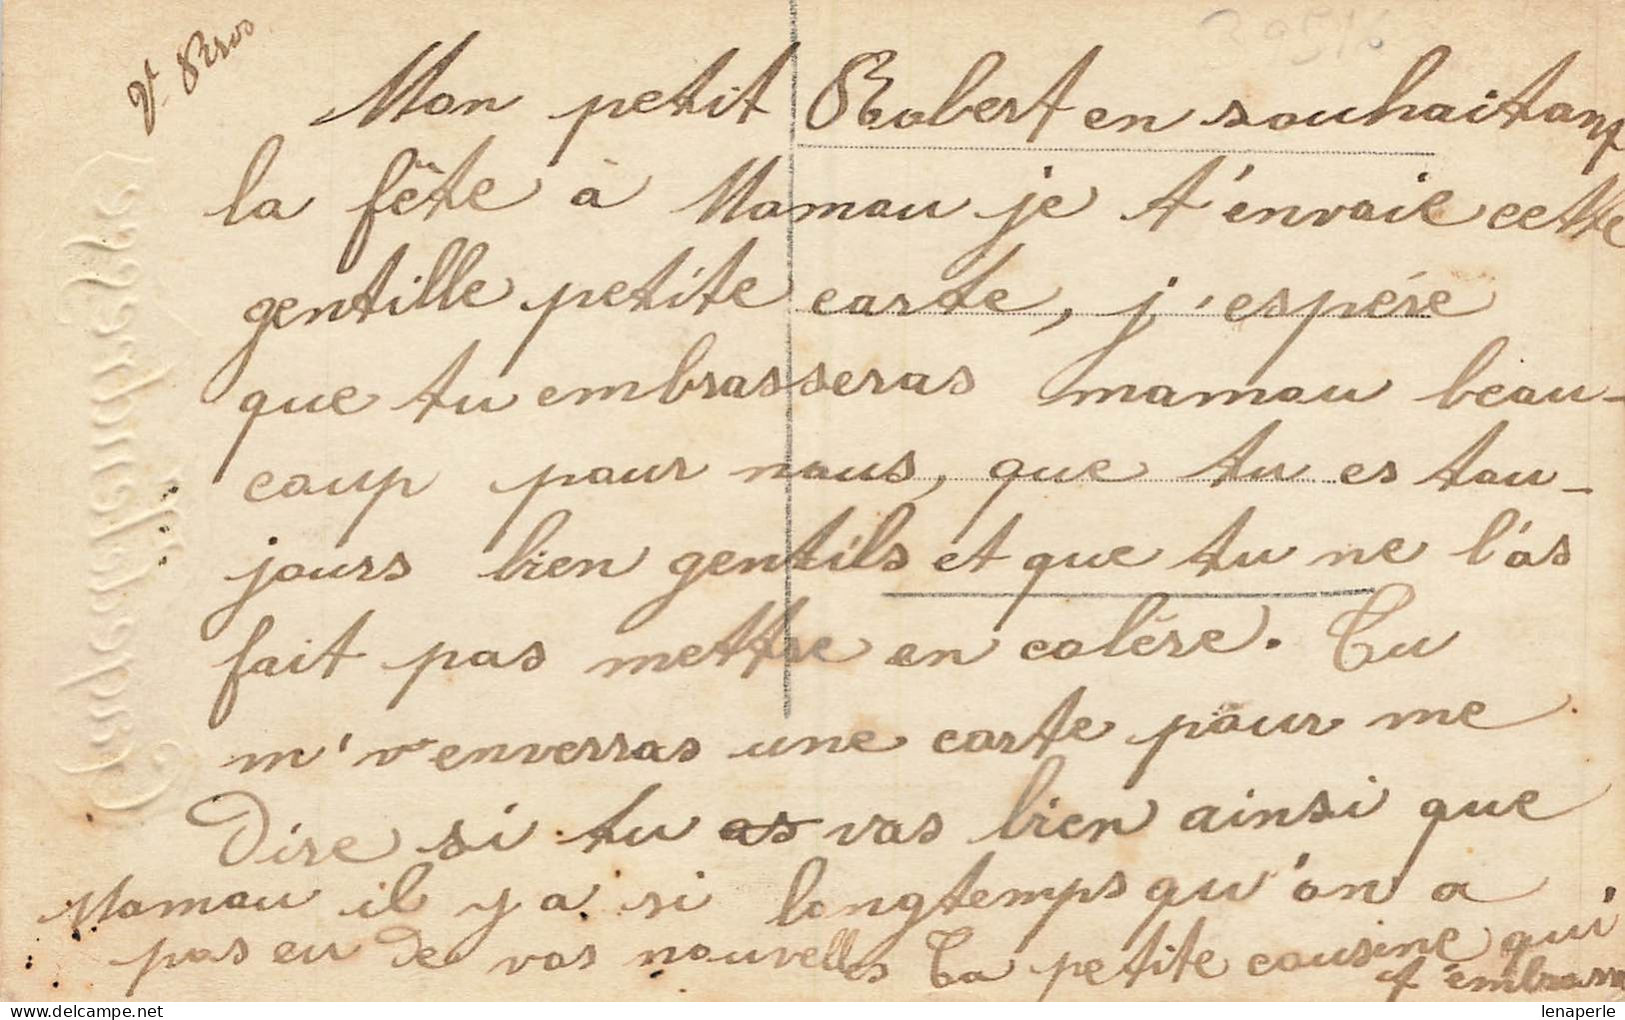 Mon petit Robert en souhaitant
la fête à Maman je t'envoie cette
gentille petite carte, j'espére
que tu embrasseras maman beau-
coup pour nous, que tu es tou-
jours bien gentils et que tu ne l'as
fait pas mettre en colére. Tu
m'renverras une carte pour me
Dire si tu as vas bien ainsi que
Maman il y a si longtemps qu'on a
pas eu de vos nouvelles Ta petite cousine qui
t'embrasse
Carte Postale
lenaperle